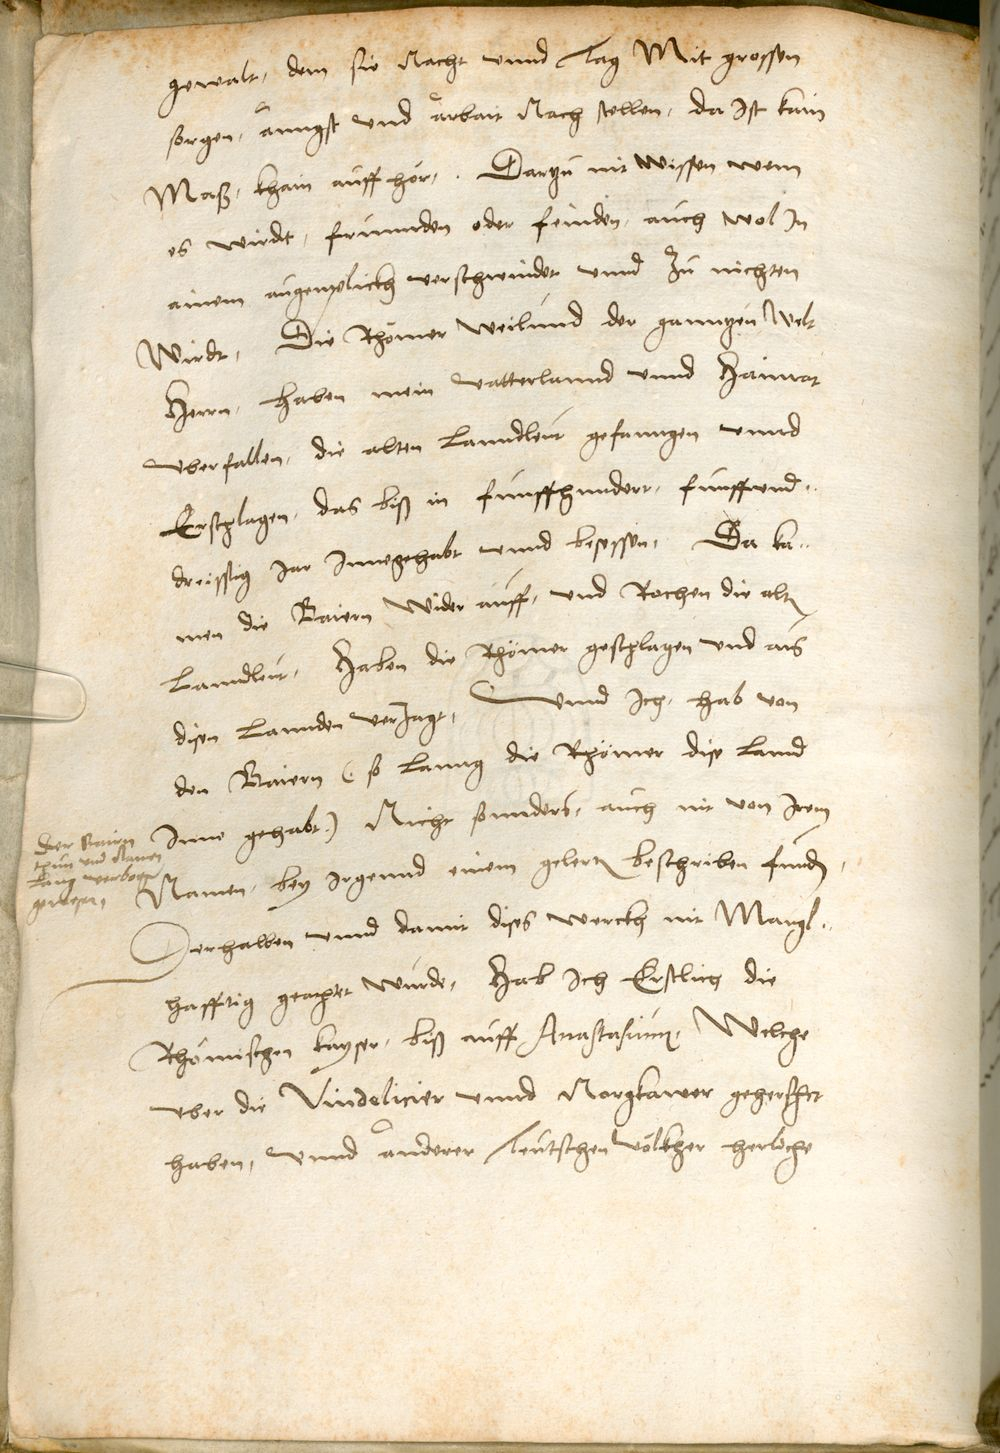 gewalt, dem sie Nacht unnd Tag Mit grossen
sorgen, anngst und arbait Nach stellen, da Ist kain
Maß, khain auffhör, . Dartzu nit Wissen wem
es wirdt, freunnden oder feinden, auch wol In
ainem augenplickh verschwindet unnd Zu nichten
Wirdt, Die Rhömer Weilunnd der ganntzen Welt
Herrn, haben mein Vatterlannd unnd Haimat
uberfallen, die alten Lanndleut gefanngen unnd
Erschlagen, das biß in funffhundert, funffund..
dreissig Jar Innegehabt unnd besessen, Da ka..
men die Baiern Wider auff, und Rochen die alten
Lanndleut, Haben die Rhömer geschlagen und aus
disen Lannden verJagt, Unnd Ich, hab von
den Baiern (: so lanng die Rhömer dise Land
Inne gehabt:) Nicht sonnders, auch nit von Irem
Namen, bey Irgennd einem gelerten beschriben funden,
Derhalben unnd damit dises werckh nit Mangl..
hafftig geachtet wurde, Hab Ich Erstlich die
Rhömischen kayser, biß auff Anastasium, Welche
uber die Vindelicier unnd Norgkawer geherschet
haben, unnd anderer Teutschen völkher herliche
Der Baiern
thun und Namen
lanng verborgen
gewesen,